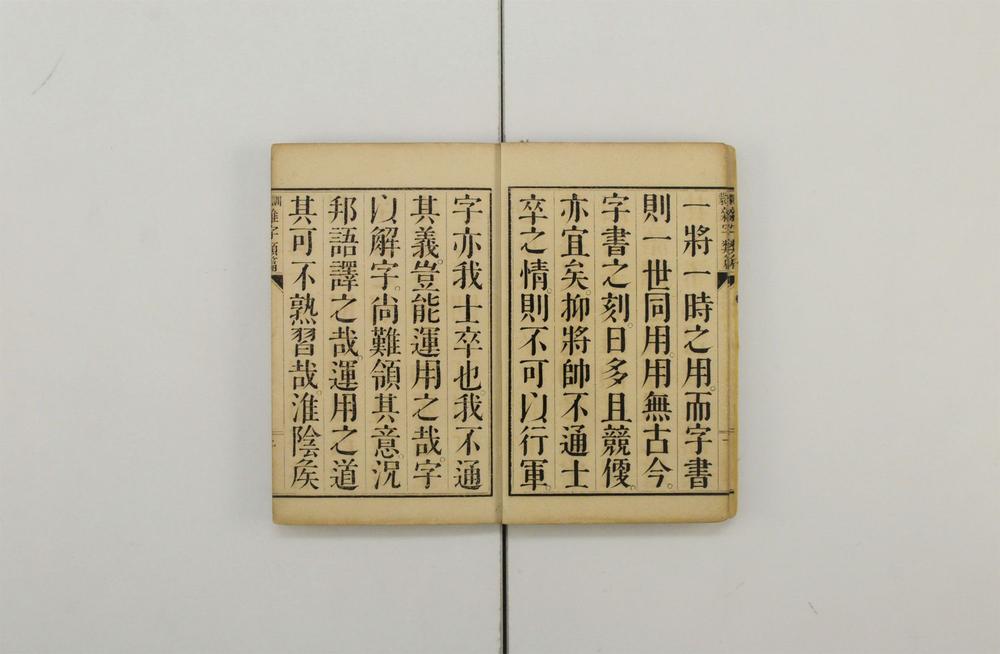 一將一時之用。而字書
則一世同用。用無古今。
字書之刻。日多且競便。
亦宜矣。抑將帥不通士
卒之情。則不可以行軍。
字亦我士卒也。我不通
其義。豈能運用之哉。字
以解字。尚難領其意。況
邦語譯之哉。運用之道
其可不熟習哉。淮陰侯